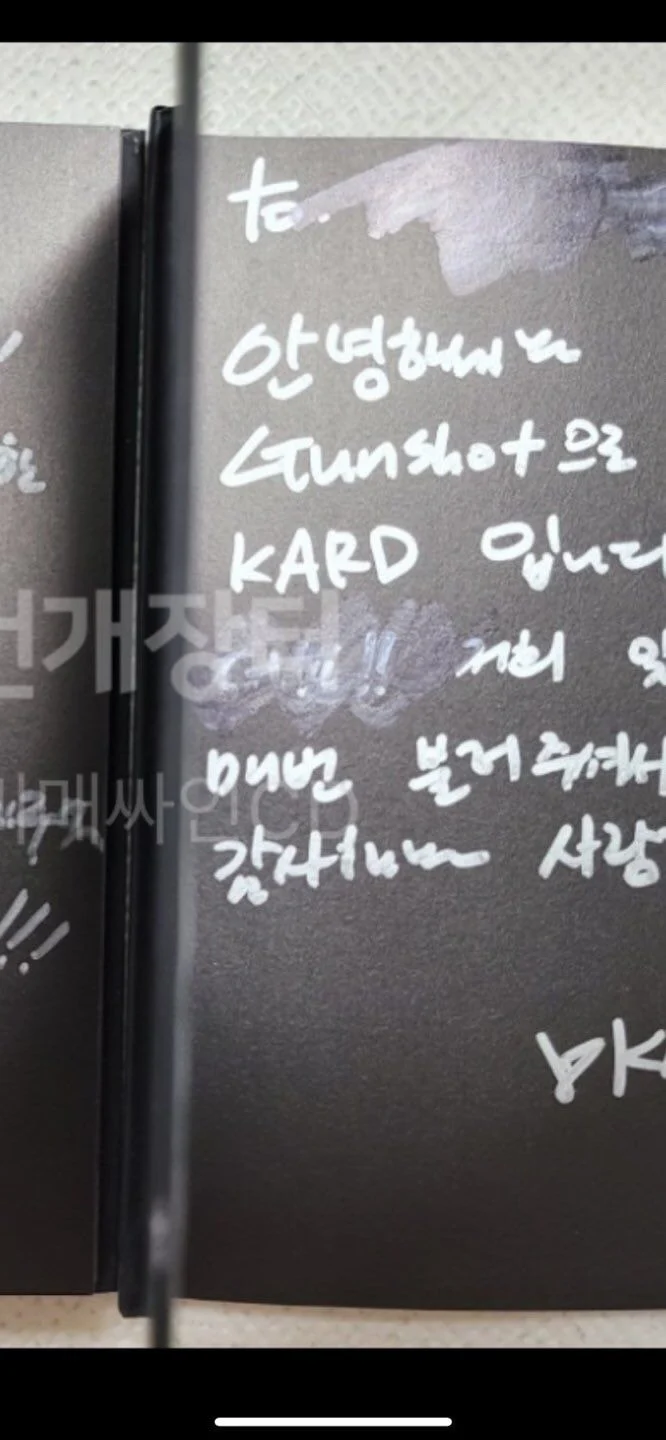 to.
안녕하세요
Gunshot으로
KARD 입니다
저희
매번 불러주셔서
감사합니다 사랑
한
번개장터
싸인CD
!!!